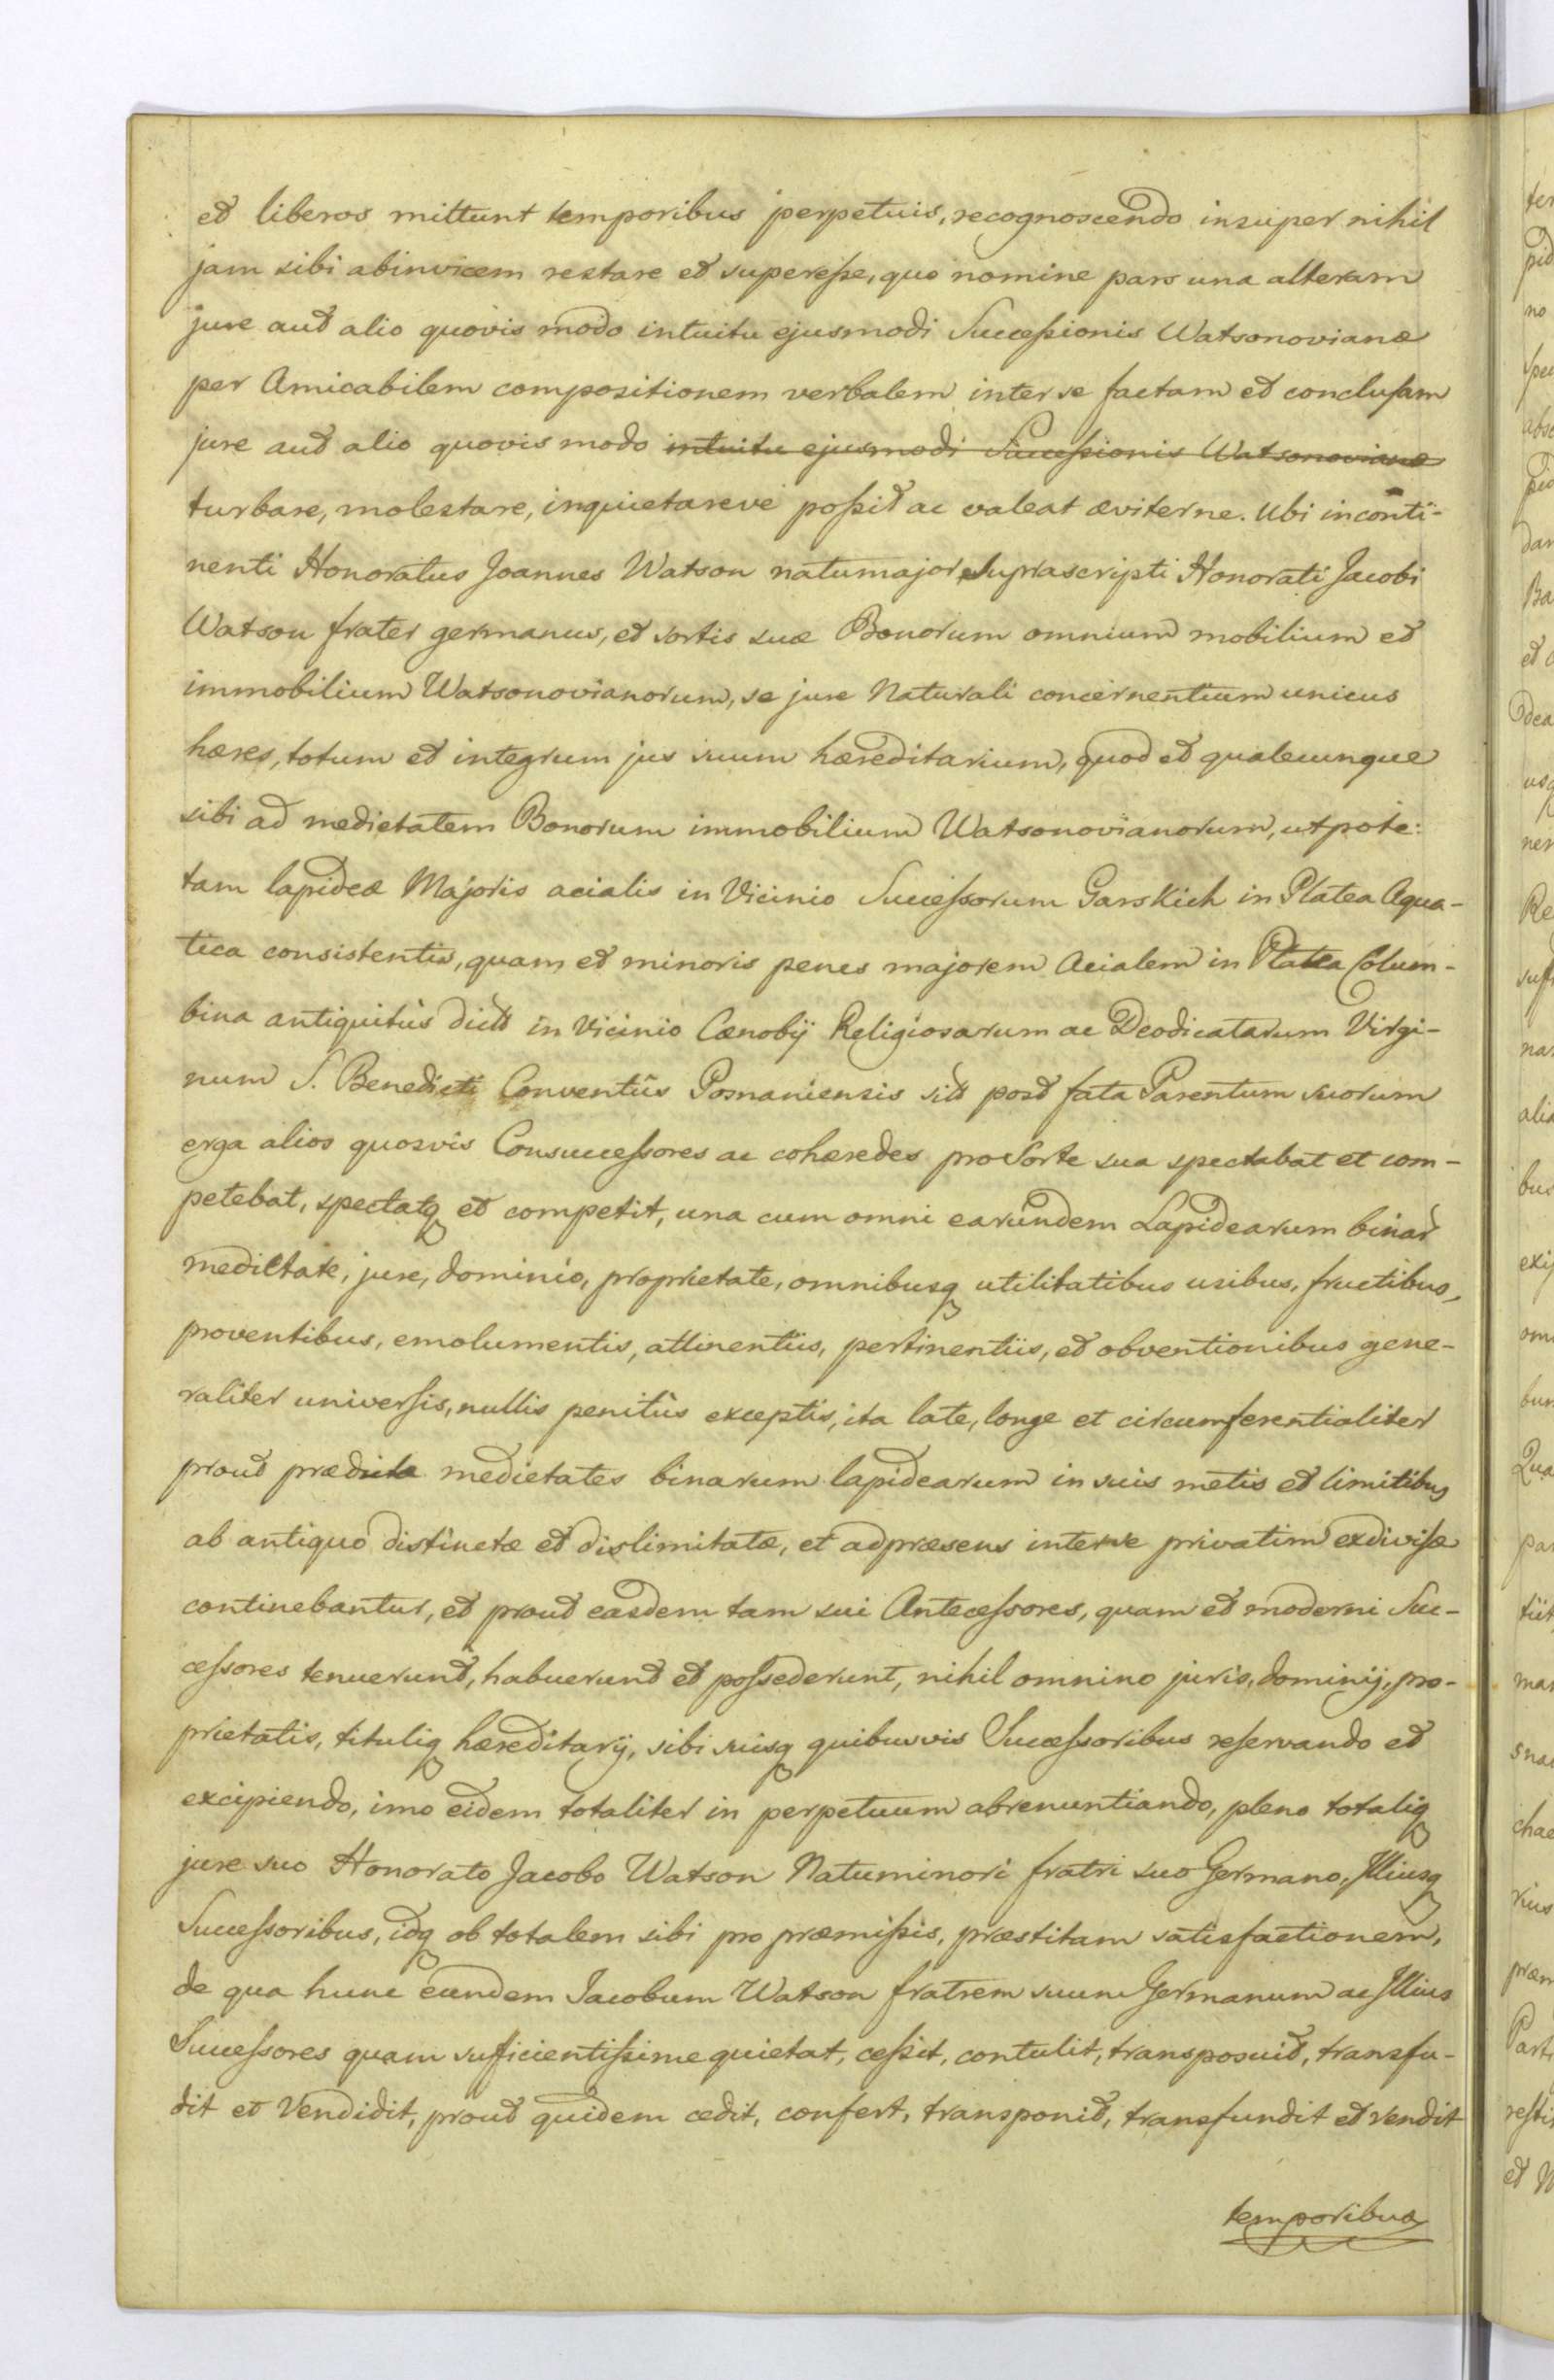 et liberos mittunt temporibus perpetuis, recognoscendo insuper nihil
jam sibi abinvicem restare et superesse, quo nomine pars una alteram
jure aut alio quovis modo intuitu ejusmodi Successionis Watsonovianæ
per Amicabilem compositionem verbalem inter se factam et conclusam
jure aut alio quovis modo intuitu ejusmodi Successionis Watsonovianæ
turbare, molestare, inquietareve possit ac valeat æviterne. Ubi inconti-
nenti Honoratus Joannes Watson natumajor, Suprascripti Honorati Jacobi
Watson frater germanus, et sortis suæ Bonorum omnium mobilium et
immobilium Watsonovianorum, se jure Naturali concernentium unicus
hæres, totum et integrum jus suum hæreditarium, quod et qualecunque
sibi ad medietatem Bonorum immobilium Watsonovianorum, utpote:
tam lapideæ Majoris acialis in Vicinio Successorum Garskich in Platea Aqua-
tica consistentis, quam et minoris penes majorem Acialem in Platea Colum-
bina antiquitùs dictæ in Vicinio Cænobij Religiosarum ac Deodicatarum Virgi-
num S. Benedicti Conventûs Posnaniensis sitæ post fata Parentum suorum
erga alios quosvis Consuccessores ac cohæredes pro Sorte sua spectabat et com-
petebat, spectatq et competit, una cum omni earundem Lapidearum binar
medietate, jure, dominio, proprietate, omnibusq utilitatibus usibus, fructibus,
proventibus, emolumentis, attinentiis, pertinentiis, et obventionibus gene-
raliter universis, nullis penitùs exceptis, ita late, longe et circumferentialiter
prout prædictæ medietates binarum lapidearum in suis metis et limitibus
ab antiquo distinctæ et dislimitatæ, et adpræsens inter se privatim exdivisæ
continebantur, et prout easdem tam sui Antecessores, quam et moderni Suc-
cessores tenuerunt, habuerunt et possederunt, nihil omnino juris, dominij, pro-
prietatis, tituliq hæreditarij, sibi suisq quibusvis Successoribus reservando et
excipiendo, imo eidem totaliter in perpetuum abrenuntiando, pleno totaliq
jure suo Honorato Jacobo Watson Natuminori fratri suo Germano, Illiusq
Successoribus, idq ob totalem sibi pro præmissis, præstitam satisfactionem,
de qua hunc eundem Jacobum Watson fratrem suum Germanum ac Illius
Successores quam sufficientissime quietat, cessit, contulit, transposuit, transfu-
dit et Vendidit, prout quidem cedit, confert, transponit, transfundit et vendit
temporibus